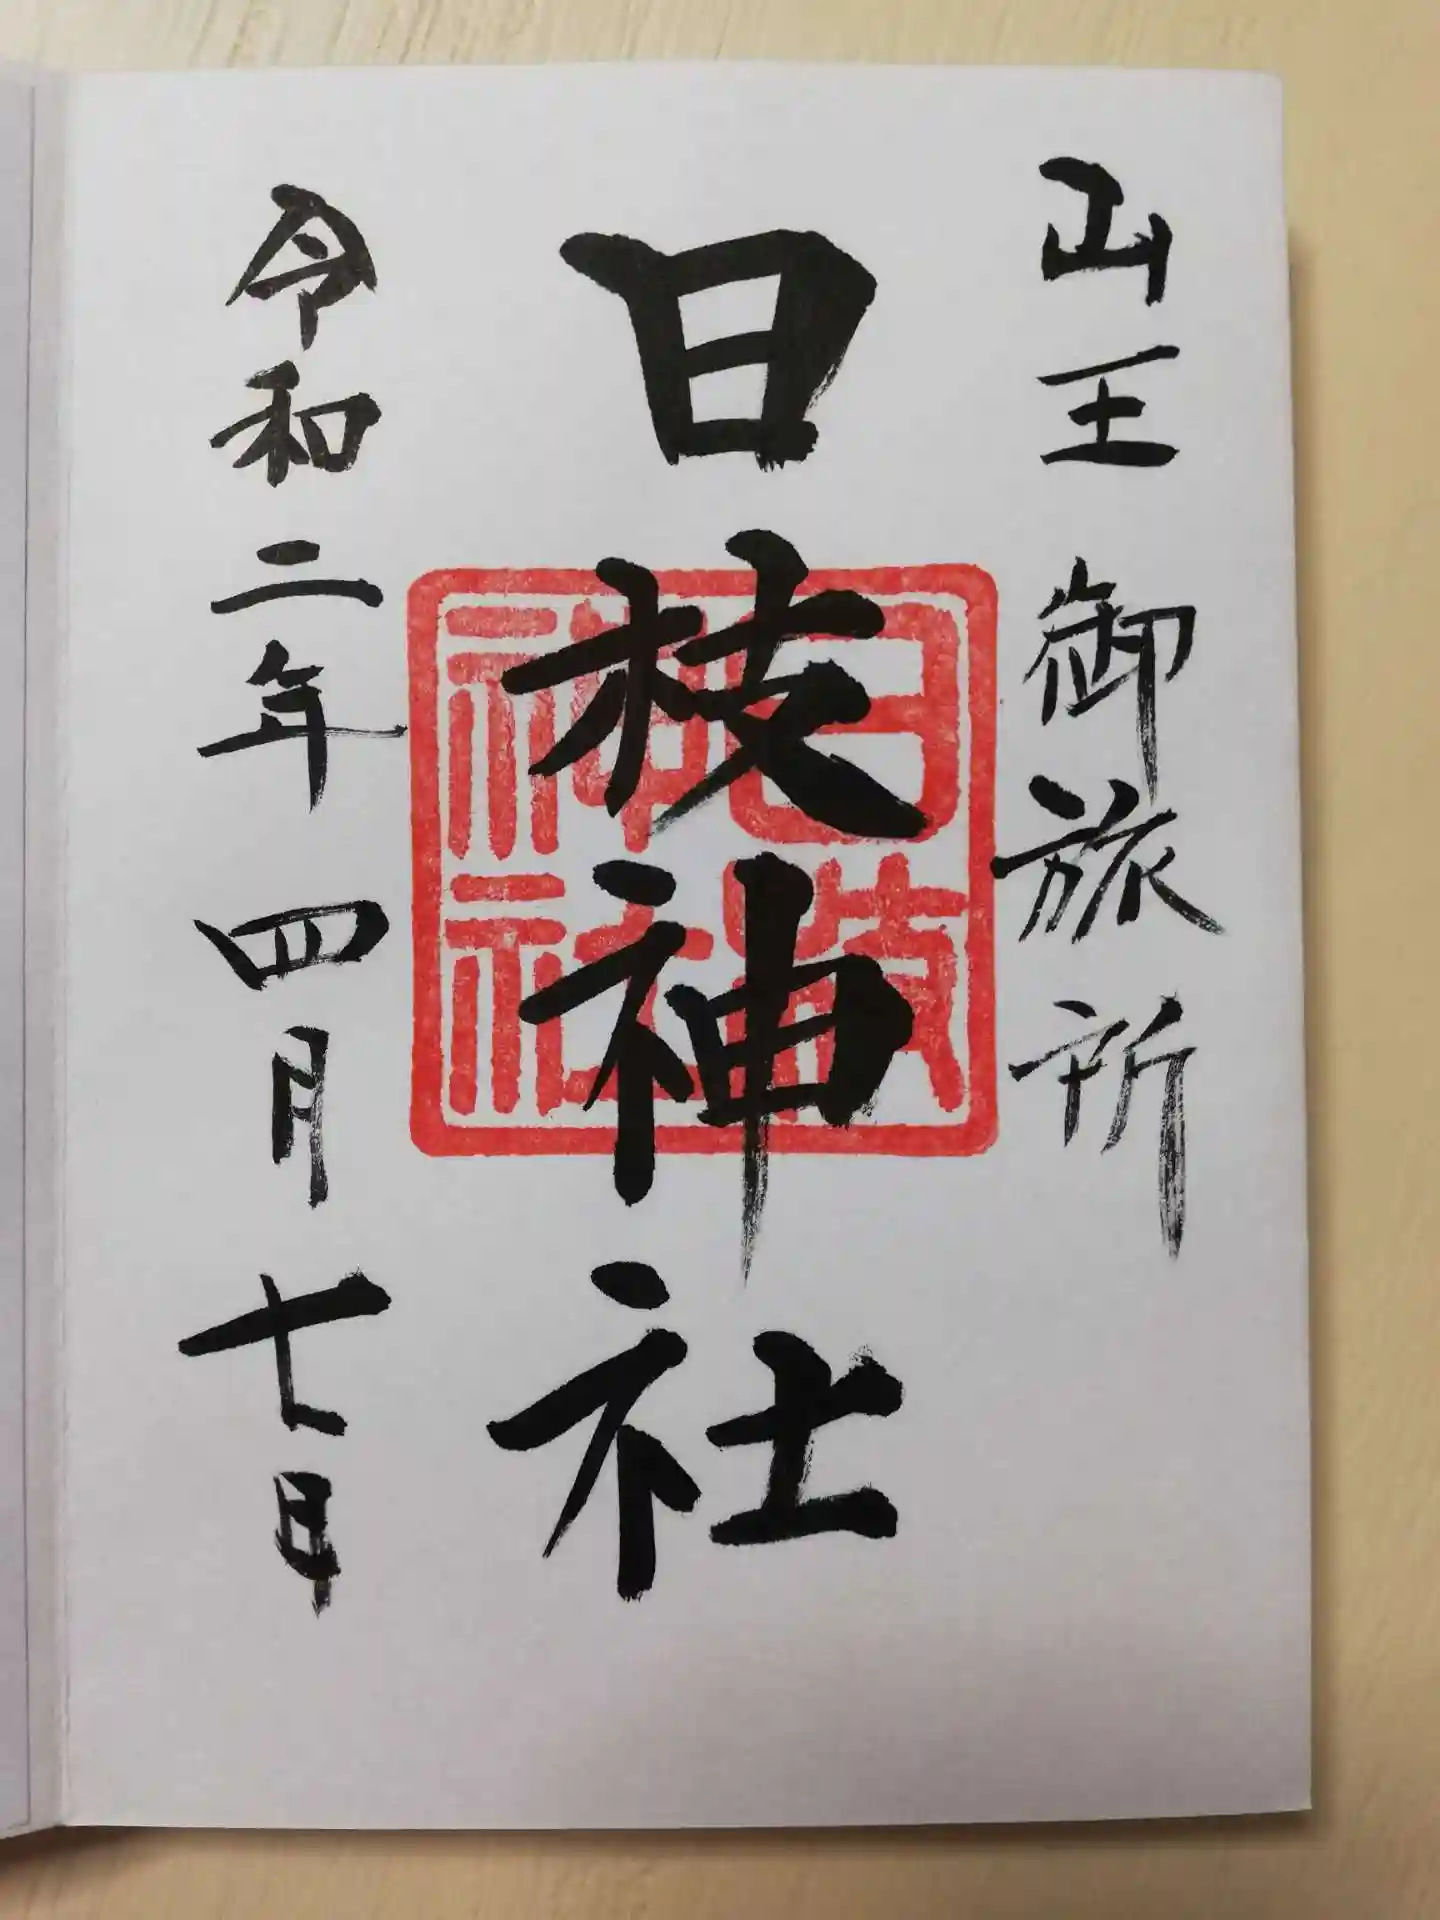 山王 御旅所
日枝神社
令和二年 四月 七日
日枝
神社